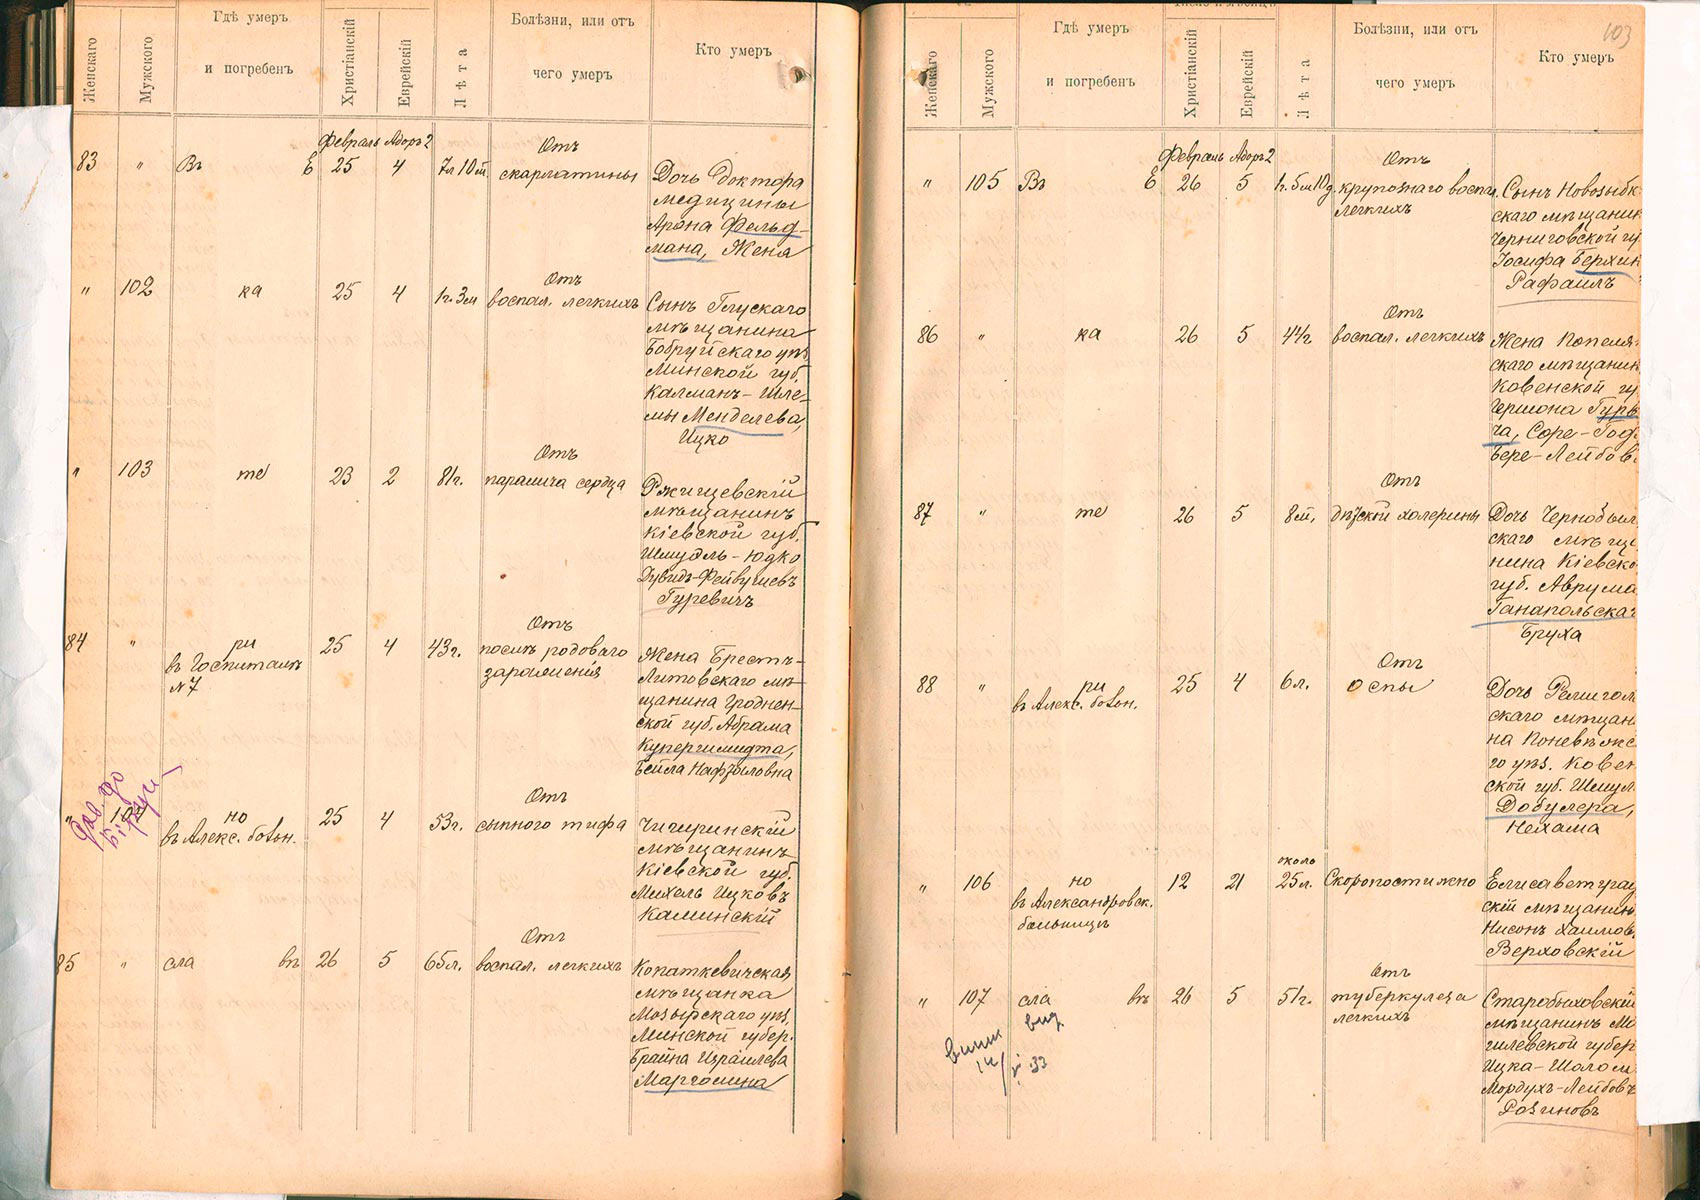 Женскаго
Мужского
Гдѣ умеръ
и погребенъ
Христіанскій
Еврейскій
Лѣта
Болѣзни, или отъ
чего умеръ
Кто умеръ
Февраль Адоръ 2
83 " Въ Е 25 4 7л 10м.
Отъ
скарлатины
Дочь Доктора
медицины
Арона Фельд-
мана, Женя
" 102 ка 25 4 1г. 3м
Отъ
воспал. легкихъ
Сынъ Глускаго
мѣщанина
Бобруйскаго уѣз.
Минской губ.
Калманъ-Шле-
мы Менделева,
Ицко
" 103 те 23 2 81г.
Отъ
паралича сердца
Ржищевскій
мѣщанинъ
Кіевской губ.
Шмуэль-Юдко
Дувидъ-Фейвушевъ
Гуревичъ
84 " ри 25 4 43г.
въ Госпиталѣ
№7
Отъ
послѣ родоваго
зараженія
Жена Брестъ-
Литовскаго мѣ-
щанина Гроднен-
ской губ. Абрама
Купершмидта,
Бейла Нафтоловна
" но 25 4 53г.
въ Алекс. больн.
Отъ
сыпного тифа
Чигиринскій
мѣщанинъ
Кіевской губ.
Михель Ицковъ
Каминскій
85 " сла въ 26 5 65л.
Отъ
воспал. легкихъ
Копаткевичская
мѣщанка
Мозырскаго уѣз.
Минской губер.
Брайна Израилева
Марголина
103
Женскаго
Мужского
Гдѣ умеръ
и погребенъ
Христіанскій
Еврейскій
Лѣта
Болѣзни, или отъ
чего умеръ
Кто умеръ
Февраль Адоръ 2
" 105 Въ Е 26 5 1г. 5м 10д.
Отъ
крупознаго воспал.
легкихъ
Сынъ Новозыбк
скаго мѣщанин
Черниговской гу
Іосифа Берхин
Рафаилъ
86 " ка 26 5 44г.
Отъ
воспал. легкихъ
Жена Попелян
скаго мѣщанин
Ковенской гу
Гершона Гурв
ча, Соре-Год
Бере-Лейбов
87 " те 26 5 8м.
Отъ
дѣтской холерины
Дочь Чернобыл
скаго мѣща
нина Кіевско
губ. Аврума
Ганапольскаг
Бруха
88 " ри 25 4 6л.
въ Алекс. больн.
Отъ
оспы
Дочь Ремигол
скаго мѣщан
на Поневѣжс
го уѣз. Ковен
ской губ. Шмул
Добулера,
Нехама
" 106 но 12 21 около 25л.
въ Александровск.
больницѣ
Скоропостижно
Елисаветград
скій мѣщанин
Нисонъ Хаимов.
Верховскій
" 107 сла въ 26 5 51г.
Отъ
туберкулеза
легкихъ
Старобыховскій
мѣщанинъ Мо
гилевской губер
Ицка-Шолом
Мордухъ-Лейбовъ
Розиновъ